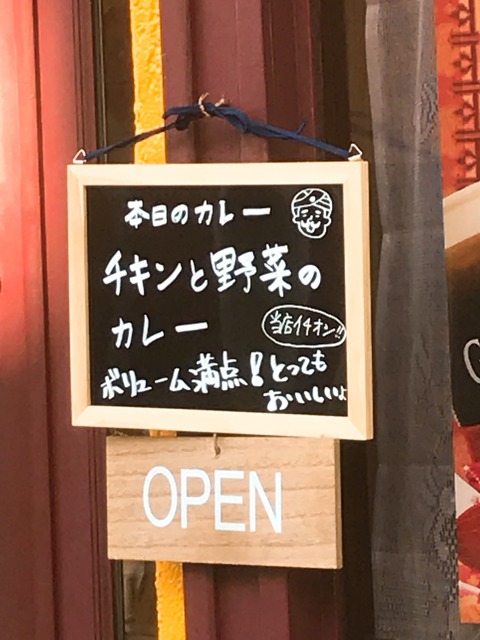 本日のカレー
チキンと野菜の
カレー
当店イチオシ!!
ボリューム満点!とっても
おいしいよ
OPEN